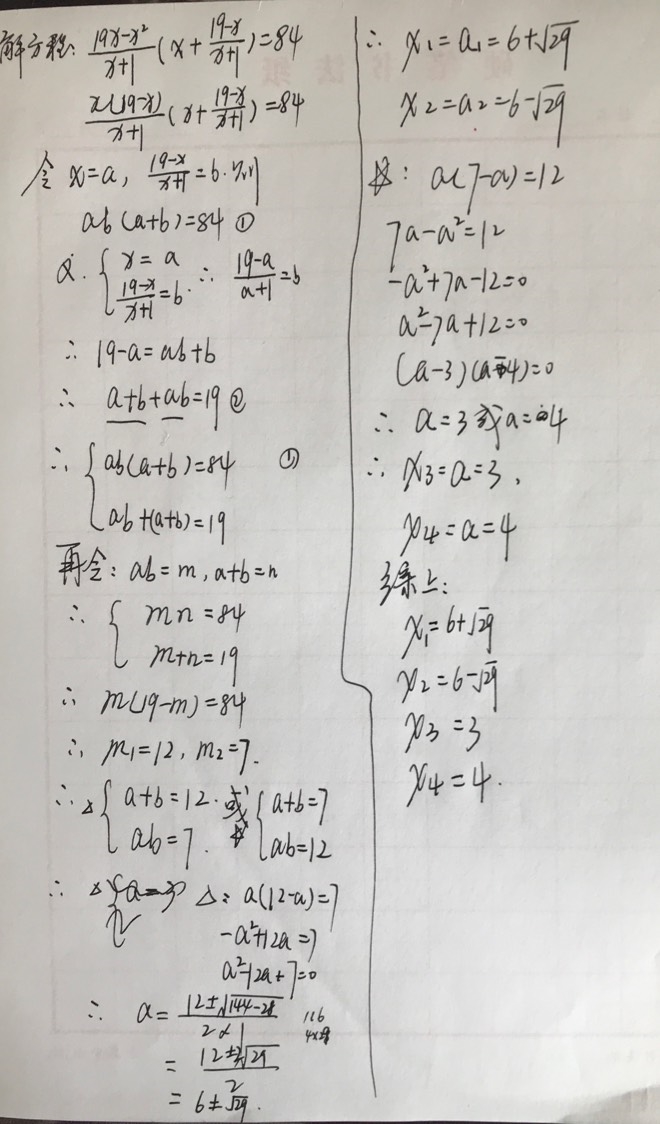 解方程: \frac{19x-x²}{x+1}(x+\frac{19-x}{x+1})=84
\frac{x(19-x)}{x+1}(x+\frac{19-x}{x+1})=84
令 x=a, \frac{19-x}{x+1}=b. 则
ab(a+b)=84 ①
又. { x=a
\frac{19-x}{x+1}=b. ∴ \frac{19-a}{a+1}=b
∴ 19-a=ab+b
∴ a+b+ab=19 ②
∴ { ab(a+b)=84 ①
ab+(a+b)=19
再令: ab=m, a+b=n
∴ { mn=84
m+n=19
∴ m(19-m)=84
∴ m₁=12, m₂=7.
∴ △ { a+b=12. 或 ☆ { a+b=7
ab=7. ab=12
∴ △: a(12-a)=7
-a²+12a=7
a²-12a+7=0
∴ a=\frac{12±√144-28}{2×1} 116
4×29
=\frac{12±2√29}{2}
=6±√29.
∴ x₁=a₁=6+√29
x₂=a₂=6-√29
☆: a(7-a)=12
7a-a²=12
-a²+7a-12=0
a²-7a+12=0
(a-3)(a-4)=0
∴ a=3或a=4
∴ x₃=a=3,
x₄=a=4
综上:
x₁=6+√29
x₂=6-√29
x₃=3
x₄=4.